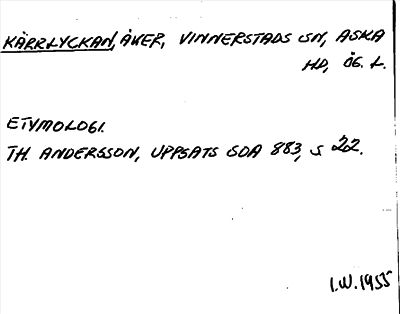 KÄRRLYCKAN, ÅKER, VINNERSTADS SN, ASKA
HD, ÖG. L.
ETYMOLOGI.
TH. ANDERSSON, UPPSATS SOA 883, S 22.
I.W. 1955